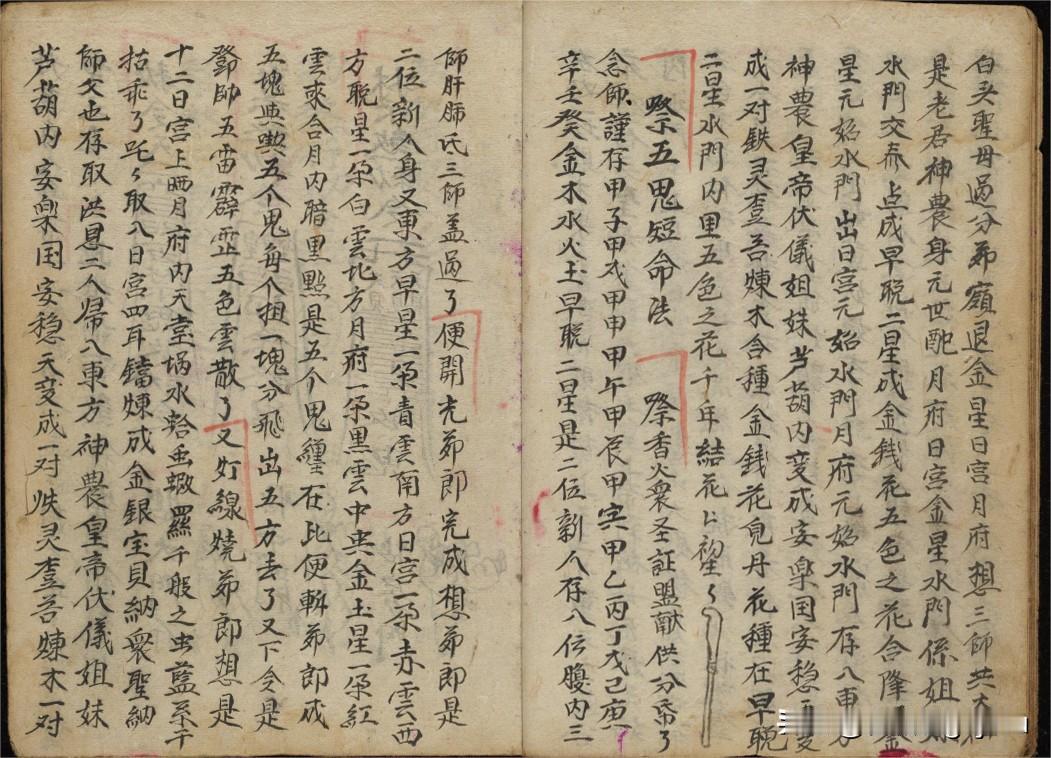 白头聖母過分弟嶺退金星日宫月府想三師共大
是老君神農身元世㐌月府日宫金星水門係姐妹
水門交泰点成早晚二星成金銭花五色之花合降金
星元始水門出日宫元始水門月府元始水門存八東方
神農皇帝伏儀姐妹芦葫内变成安樂国安穏
成一对鉄灵查苔煉木合種金銭花皃丹花種在早晚
二星水門内里五色之花千年結花上初望
祭五鬼短命法 祭香火衆圣証盟献供分弟了
念師謹存甲子甲戌甲申甲午甲辰甲寅甲乙丙丁戊己庚
辛壬癸金木水火土早晚二星是二位新人存八位腹内三
師肝肺氏三師盖過了便開光茆郎完成想茆郎是
二位新人身又東方早星一朵青雲南方日宫一朵赤雲西
方晚星一朵白雲北方月府一朵黒雲中央金土星一朵紅
雲來合月内暗黒㸃是五个鬼纏在比便斬茆郎成
五塊與與五个鬼每个担一塊分飛出五方去了又下令是
鄧帥五雷霹雳五色雲散了又灯線燒茆郎想是
十二日宫上晒月府内天堂堝水蛤虫蝦羅千般之虫藍
枯乖了吒々取八日宫四耳鐺煉成金銀宝貝納衆聖納
師父也存取洪恩二人帰八東方神農皇帝伏儀姐妹
芦葫内安樂国安穏天变成一对鉄灵查苔煉木一对